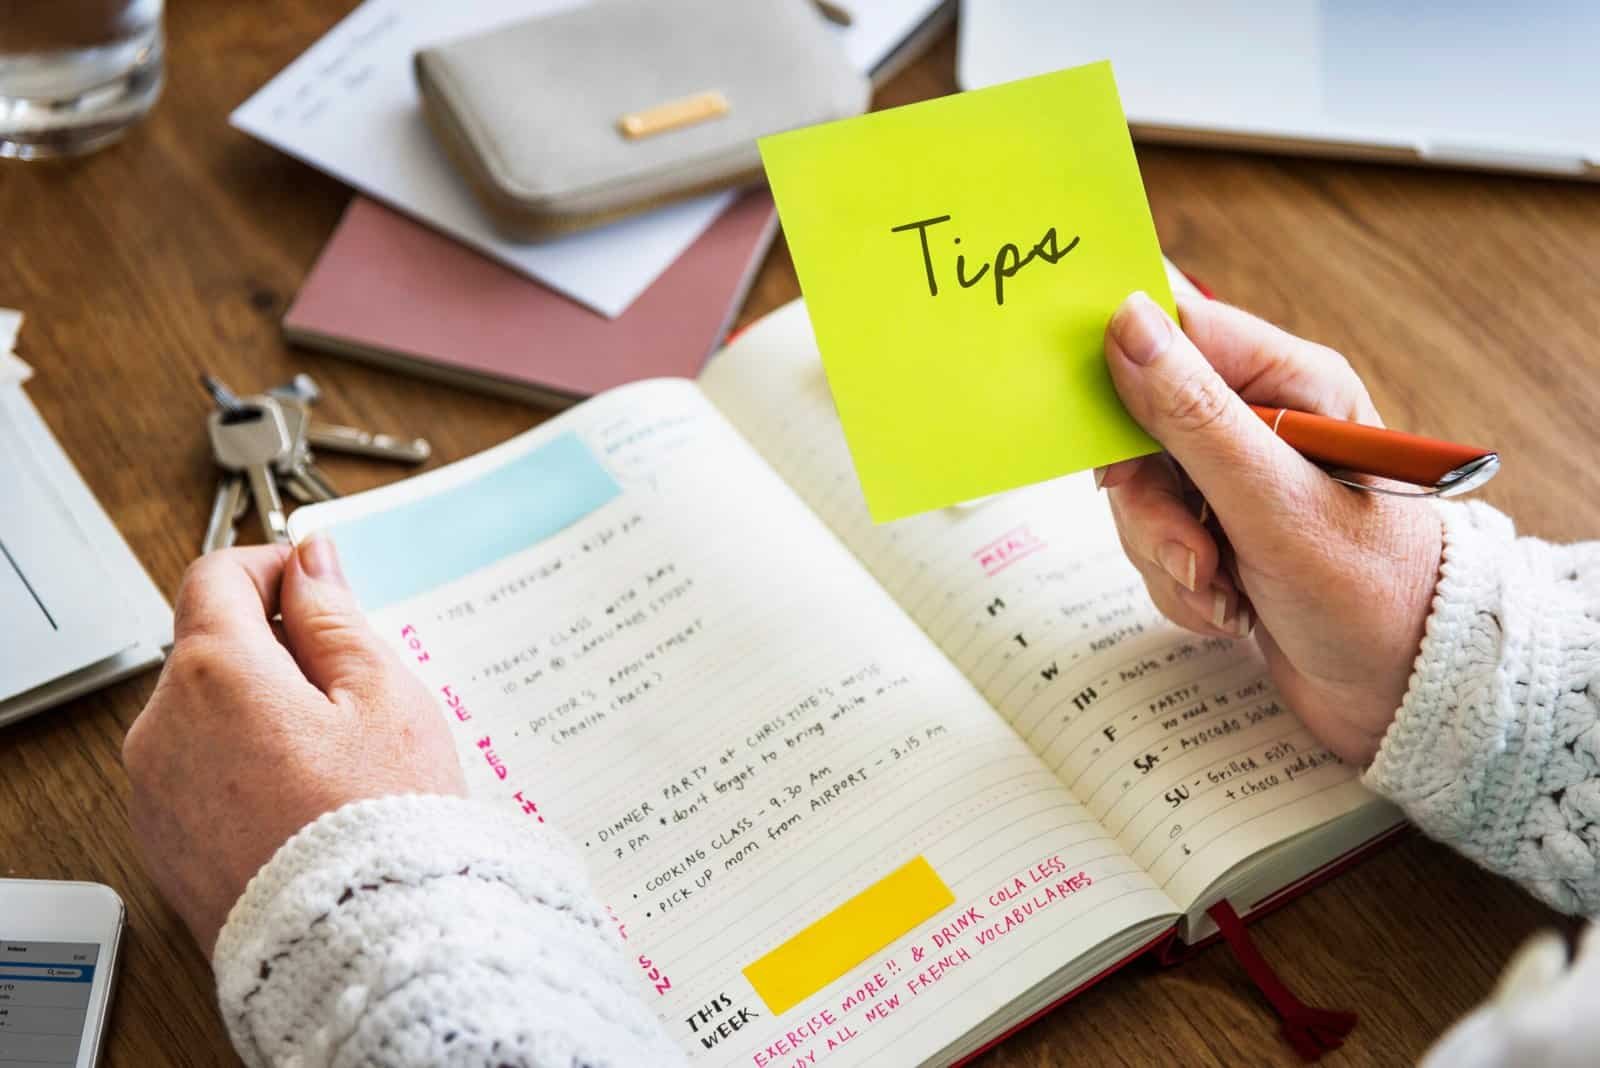 Tips
• JOB INTERVIEW -
MON
• FRENCH CLASS WITH AMY
10 AM @ LANGUAGES STUDIO
TUE
• DOCTOR'S APPOINTMENT
(health check)
WED
• DINNER PARTY at CHRISTINE'S HOUSE
7 PM * don't forget to bring white wine
TH
• COOKING CLASS - 9.30 AM
• PICK UP mom from AIRPORT - 3.15 PM
SUN
THIS
WEEK
EXERCISE MORE!! & DRINK COLA LESS
ALL NEW FRENCH VOCABULARIES
MEALS
M -
T -
W - Roasted
TH - Pasta with
F - PARTY
no need to cook
SA - Avocado Salad
SU - Grilled Fish
+ choco pudding
Inbox
Edit
Search